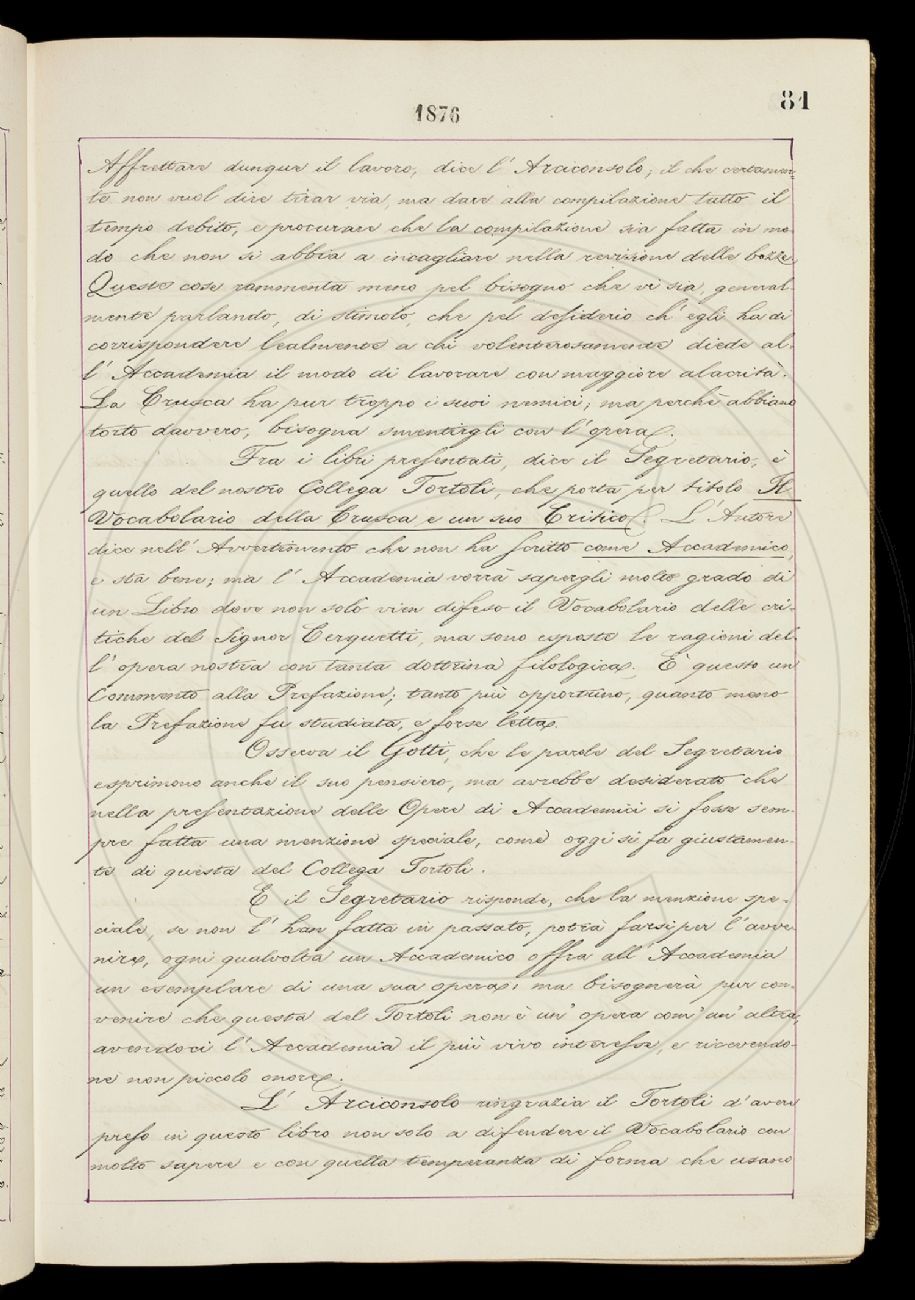 1876
81
Affrettare dunque il lavoro, dice l' Arciconsolo; il che certamen-
te non vuol dire tirar via, ma dare alla compilazione tutto il
tempo debito, e procurare che la compilazione sia fatta in mo-
do che non si abbia a incagliare nella revisione delle bozze.
Queste cose rammenta meno pel bisogno che vi sia, general-
mente parlando, di stimolo, che pel desiderio ch' egli ha di
corrispondere lealmente a chi volenterosamente diede al-
l' Accademia il modo di lavorare con maggiore alacrità.
La Crusca ha pur troppo i suoi nemici; ma perchè abbiano
torto davvero, bisogna smentirgli con l' opera.
Fra i libri presentati, dice il Segretario, è
quello del nostro Collega Tortoli, che porta per titolo Il
Vocabolario della Crusca e un suo Critico. L' Autore
dice nell' Avvertimento che non ha scritto come Accademico,
e sta bene; ma l' Accademia vorrà sapergli molto grado di
un Libro dove non solo vien difeso il Vocabolario delle cri-
tiche del Signor Cerquetti, ma sono esposte le ragioni del-
l' opera nostra con tanta dottrina filologica. È questo un
Commento alla Prefazione; tanto più opportuno, quanto meno
la Prefazione fu studiata, e forse letta.
Osserva il Gotti, che le parole del Segretario
esprimono anche il suo pensiero, ma avrebbe desiderato che
nella presentazione delle Opere di Accademici si fosse sem-
pre fatta una menzione speciale, come oggi si fa giustamen-
te di questa del Collega Tortoli.
E il Segretario risponde, che la menzione spe-
ciale, se non l' han fatta in passato, potrà farsi per l' avve-
nire, ogni qualvolta un Accademico offra all' Accademia
un esemplare di una sua opera; ma bisognerà pur con-
venire che questa del Tortoli non è un' opera com' un' altra,
avendoci l' Accademia il più vivo interesse, e ricevendo-
ne non piccolo onore.
L' Arciconsolo ringrazia il Tortoli d' aver
preso in questo libro non solo a difendere il Vocabolario con
molto sapere e con quella temperanza di forma che usano